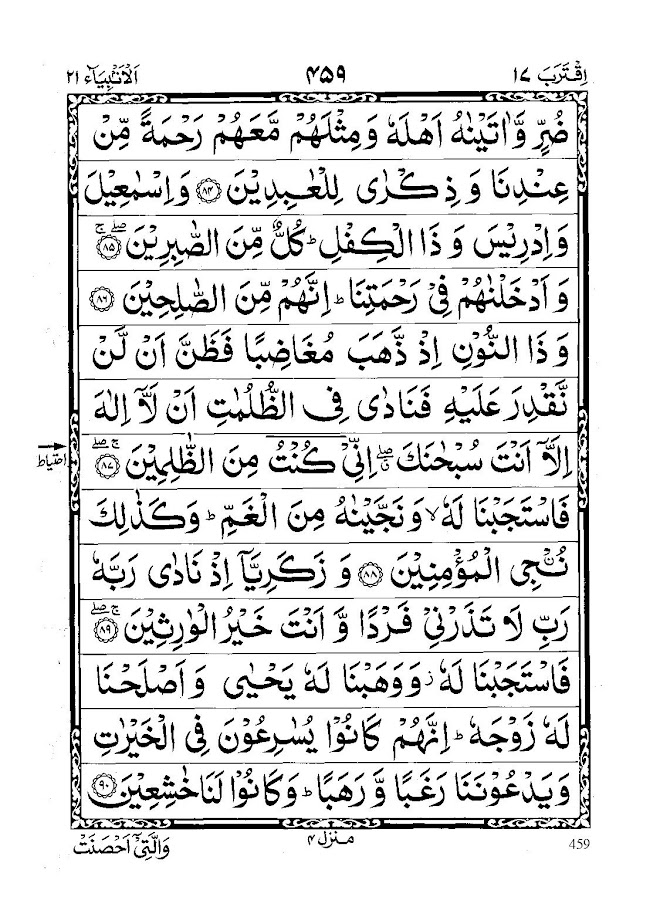 اِقْتَرَبَ ١٧ ۴۵۹ اَلْاَنْۢبِيَآء ٢١
ضُرٍّ وَّاٰتَيْنٰهُ اَهْلَهٗ وَمِثْلَهُمْ مَّعَهُمْ رَحْمَةً مِّنْ
عِنْدِنَا وَ ذِكْرٰى لِلْعٰبِدِيْنَ ﴿۸۴﴾ وَاِسْمٰعِيْلَ
وَاِدْرِيْسَ وَ ذَا الْكِفْلِ ؕ كُلٌّ مِّنَ الصّٰبِرِيْنَ ﴿۸۵﴾ صلے ج
وَ اَدْخَلْنٰهُمْ فِيْ رَحْمَتِنَا ؕ اِنَّهُمْ مِّنَ الصّٰلِحِيْنَ ﴿۸۶﴾
وَ ذَا النُّوْنِ اِذْ ذَّهَبَ مُغَاضِبًا فَظَنَّ اَنْ لَّنْ
نَّقْدِرَ عَلَيْهِ فَنَادٰى فِي الظُّلُمٰتِ اَنْ لَّاۤ اِلٰهَ
احتیاط اِلَّاۤ اَنْتَ سُبْحٰنَكَ ۖ اِنِّيْ كُنْتُ مِنَ الظّٰلِمِيْنَ ﴿۸۷﴾ ج صلے
فَاسْتَجَبْنَا لَهٗ ۙ وَ نَجَّيْنٰهُ مِنَ الْغَمِّ ؕ وَكَذٰلِكَ
نُـْۨجِي الْمُؤْمِنِيْنَ ﴿۸۸﴾ وَ زَكَرِيَّاۤ اِذْ نَادٰى رَبَّهٗ
رَبِّ لَا تَذَرْنِيْ فَرْدًا وَّ اَنْتَ خَيْرُ الْوٰرِثِيْنَ ﴿۸۹﴾ ج صلے
فَاسْتَجَبْنَا لَهٗ ز وَوَهَبْنَا لَهٗ يَحْيٰى وَ اَصْلَحْنَا
لَهٗ زَوْجَهٗ ؕ اِنَّهُمْ كَانُوْا يُسٰرِعُوْنَ فِي الْخَيْرٰتِ
وَيَدْعُوْنَنَا رَغَبًا وَّ رَهَبًا ؕ وَكَانُوْا لَنَا خٰشِعِيْنَ ﴿۹۰﴾
459 منزل ۴ وَالَّتِيْۤ اَحْصَنَتْ